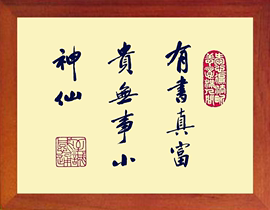 有書真富
貴無事小
神仙